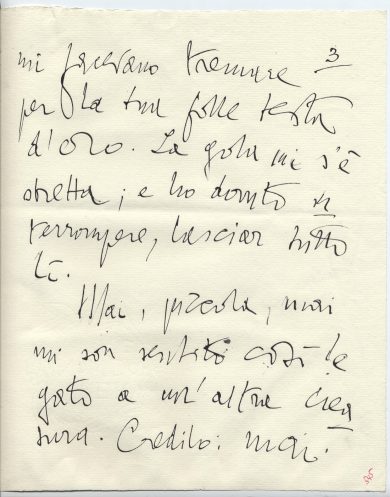 3
mi facevano tremare
per la tua folle testa
d'oro. La gola mi s'è
stretta; e ho dovuto in
terrompere, lasciar tutto
lì.
Mai, piccola, mai
mi son sentito così le
gato a un'altra crea
tura. Credilo: mai.